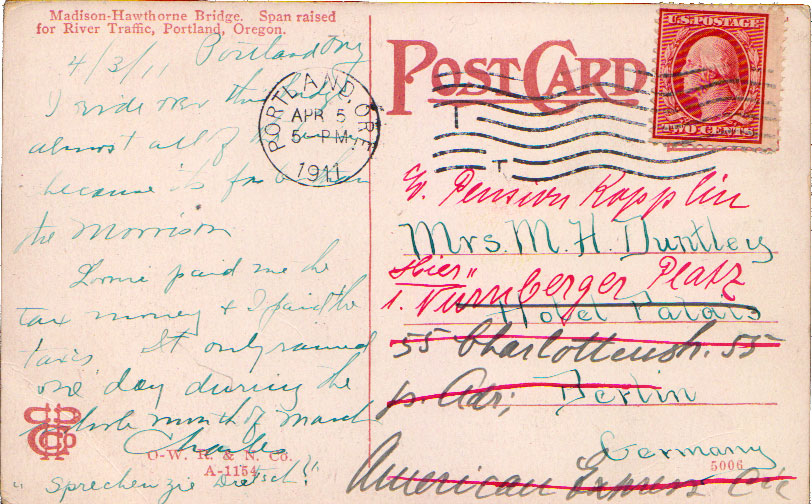 Madison-Hawthorne Bridge. Span raised
for River Traffic, Portland, Oregon.
Portland Org
4/3/11
I ride over this bridge
almost all of the
because it is far better than
the Morrison
Lome paid me the
tax money & I paid the
taxis. It only rained
one day during the
whole month of March
Charles
O-W. R. & N. Co.
A-1154
"Sprechen zie Dietsch?"
PORTLAND, ORE.
APR 5
5-PM
1911
POST CARD
U.S. POSTAGE
TWO CENTS
Pension Kopplin
Mrs. M. H. Duntley
Hier"
1. Nürnberger Platz
Hotel Palais
55 Charlottenstr. 55
p. Adr; Berlin
Germany
5006
American Express Co